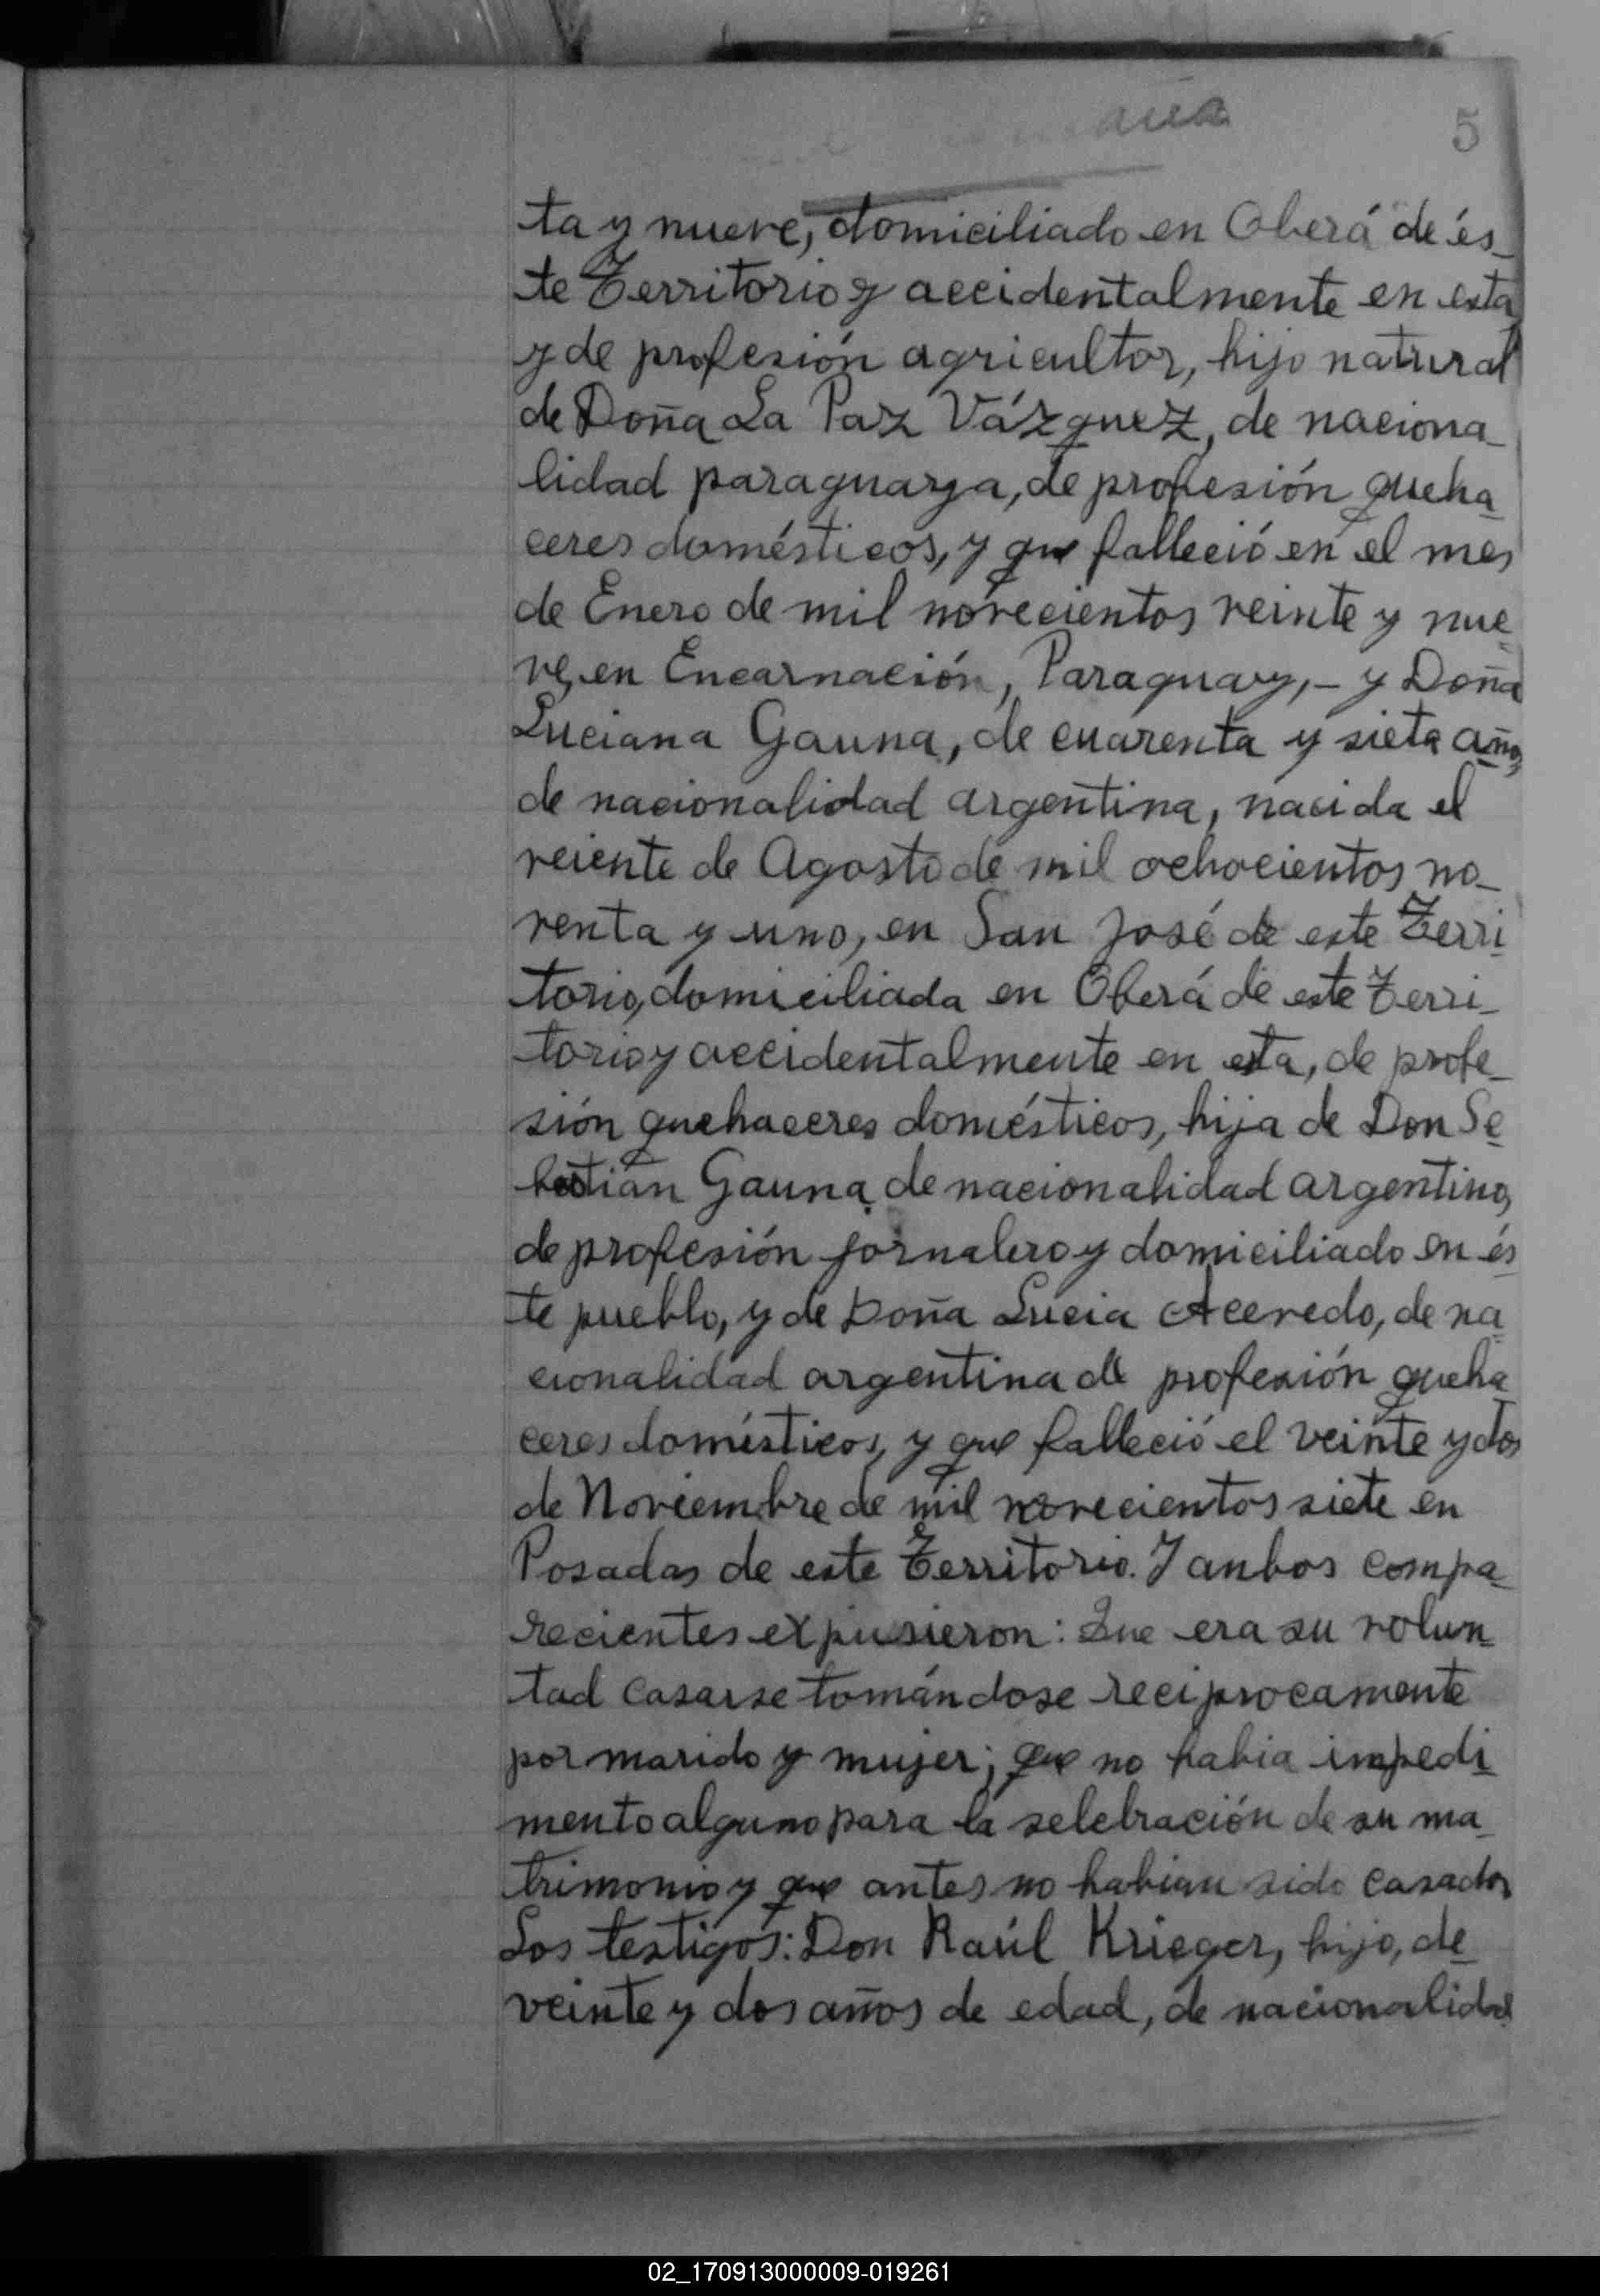 5
ta y nueve, domiciliado en Oberá de és-
te Territorio y accidentalmente en esta
y de profesión agricultor, hijo natural
de Doña La Paz Vázquez, de naciona-
lidad paraguaya, de profesión queha
ceres domésticos, y que falleció en el mes
de Enero de mil novecientos veinte y nue
ve, en Encarnación, Paraguay,- y Doña
Luciana Gauna, de cuarenta y siete años,
de nacionalidad argentina, nacida el
veiente de Agosto de mil ochocientos no-
venta y uno, en San José de este Terri
torio, domiciliada en Oberá de este Terri-
torio y accidentalmente en esta, de profe-
sión quehaceres domésticos, hija de Don Se
bastián Gauna, de nacionalidad argentino,
de profesión jornalero y domiciliado en és
te pueblo, y de Doña Lucia Acevedo, de na
cionalidad argentina de profesión queha
ceres domésticos, y que falleció el veinte y dos
de Noviembre de mil novecientos siete en
Posadas de este Territorio. Y anbos compa-
recientes expusieron: Que era su volun
tad casarse tomándose reciprocamente
por marido y mujer; que no habia impedi
mento alguno para la selebración de su ma-
trimonio y que antes no habian sido casados
Los testigos: Don Raúl Krieger, hijo, de
veinte y dos años de edad, de nacionalidad
02_170913000009-019261